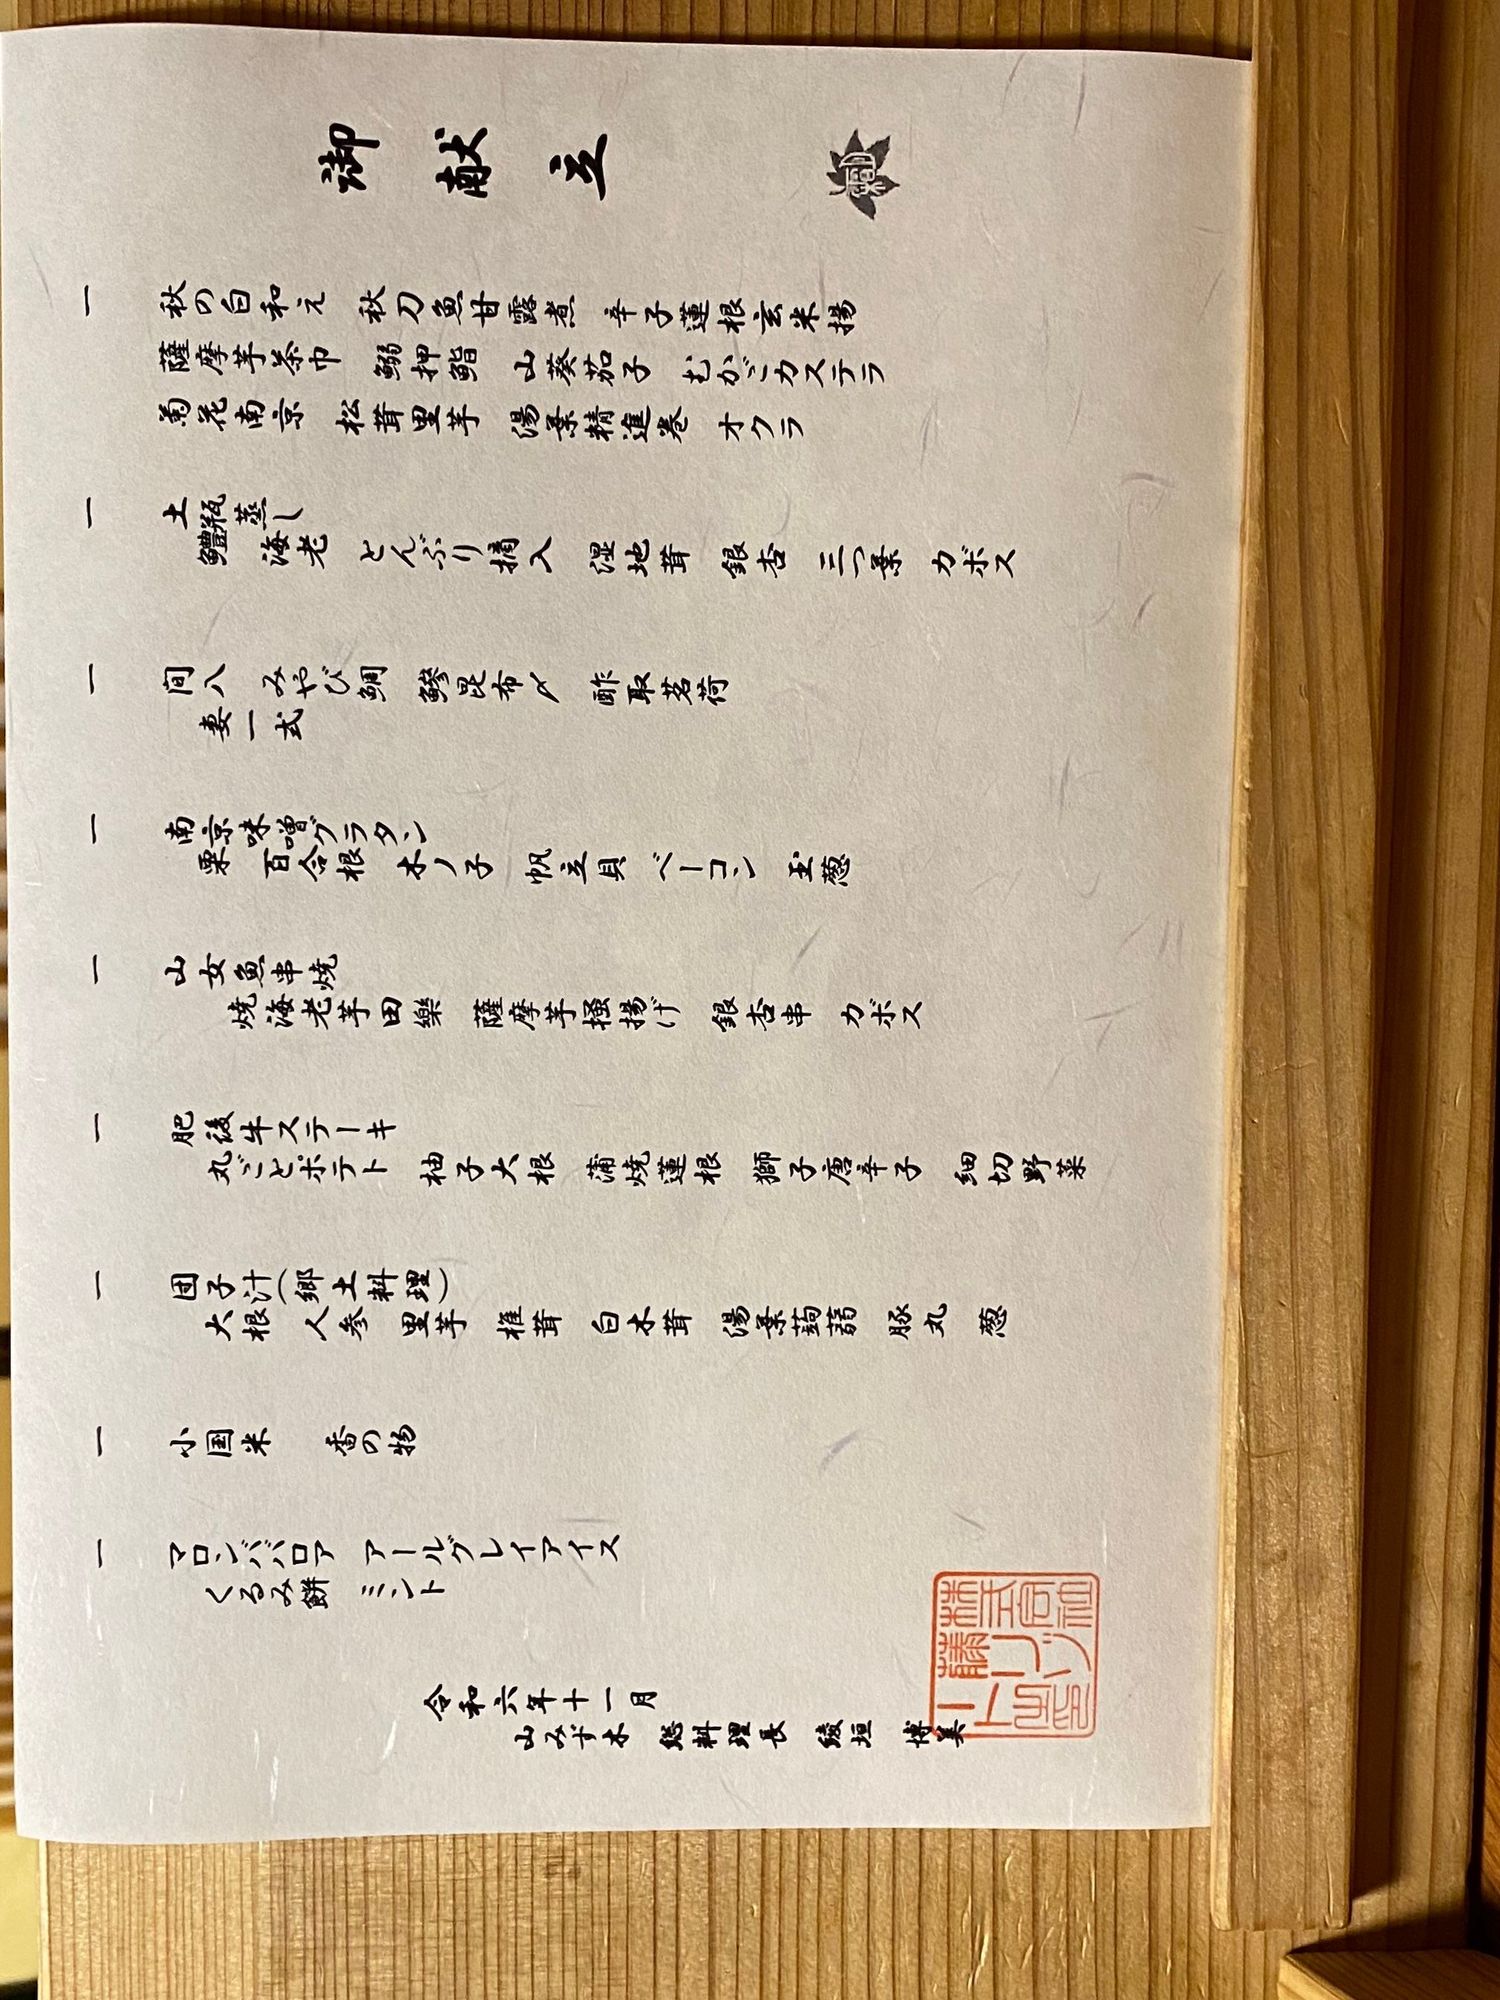 御献立
一 秋の白和え 秋刀魚甘露煮 辛子蓮根玄米揚
薩摩芋茶巾 鰯押鮨 山葵茄子 むかごカステラ
菊花南京 松茸里芋 湯葉精進巻 オクラ
一 土瓶蒸し
鱧 海老 とんぶり摘入 湿地茸 銀杏 三つ葉 カボス
一 間八 みやび鯛 鰺昆布〆 酢取茗荷
妻一式
一 南京味噌グラタン
栗 百合根 木ノ子 帆立貝 ベーコン 玉葱
一 山女魚串焼
焼海老芋田樂 薩摩芋掻揚げ 銀杏串 カボス
一 肥後牛ステーキ
丸ごとポテト 柚子大根 蒲焼蓮根 獅子唐辛子 細切野菜
一 団子汁(郷土料理)
大根 人参 里芋 椎茸 白木茸 湯葉蒟蒻 豚丸 葱
一 小国米 香の物
一 マロンババロア アールグレイアイス
くるみ餅 ミント
令和六年十一月
山みず木 総料理長 綾垣 博美